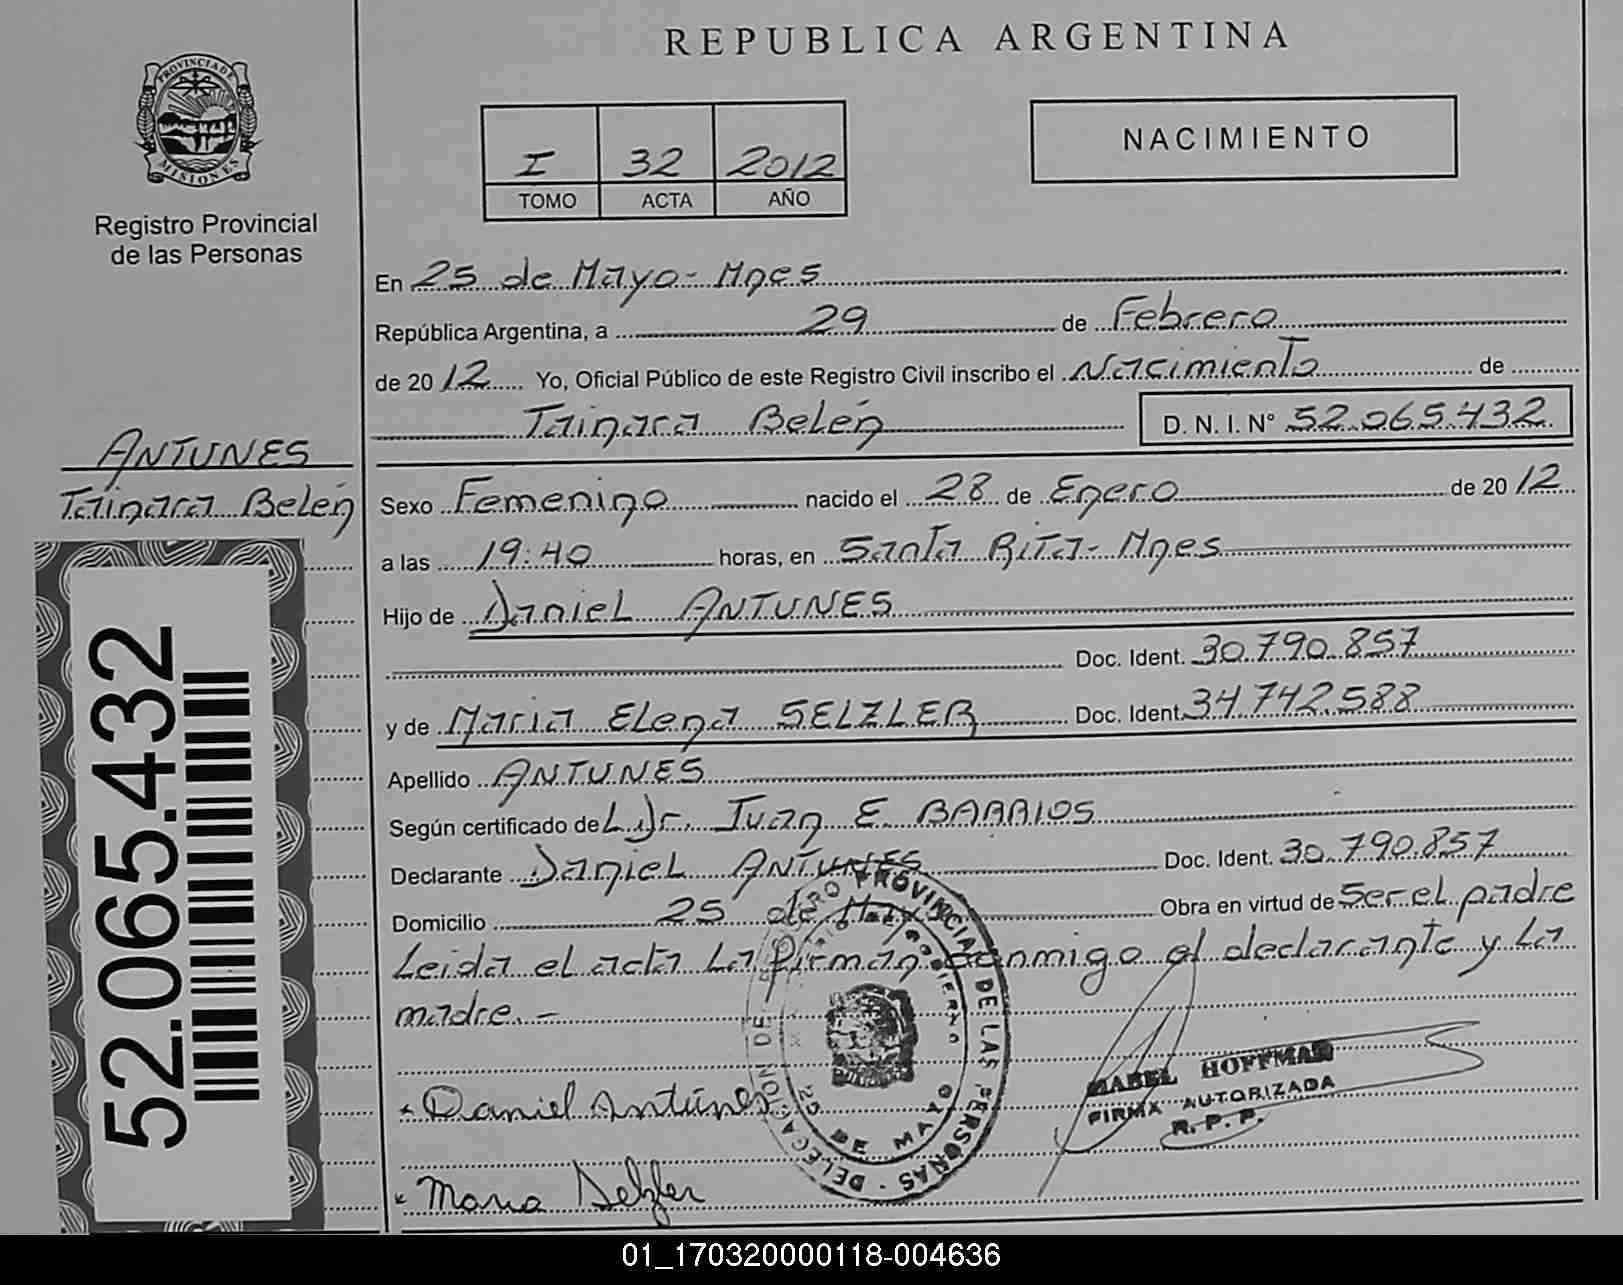 REPUBLICA ARGENTINA
PROVINCIA DE MISIONES
Registro Provincial
de las Personas
I 32 2012
TOMO ACTA AÑO
NACIMIENTO
En 25 de Mayo - Mnes
República Argentina, a 29 de Febrero
de 20 12 Yo, Oficial Público de este Registro Civil inscribo el Nacimiento de
Tainara Belén D. N. I. Nº 52.065.432
ANTUNES
Tainara Belén
Sexo Femenino nacido el 28 de Enero de 20 12
a las 19:40 horas, en Santa Rita - Mnes
Hijo de Daniel ANTUNES
Doc. Ident. 30.790.857
y de Maria Elena SELZLER Doc. Ident. 34.742.588
Apellido ANTUNES
Según certificado de L. Dr. Juan E. BARRIOS
Declarante Daniel ANTUNES Doc. Ident. 30.790.857
Domicilio 25 de Mayo Obra en virtud de Ser el padre
Leida el acta La firman conmigo el declarante y La
madre. -
52.065.432
DELEGACION DE REGISTRO PROVINCIAL DE LAS PERSONAS
25 DE MAYO
Daniel Antúnes
MABEL HOFFMAN
FIRMA AUTORIZADA
R. P. P.
Maria Selzler
01_170320000118-004636